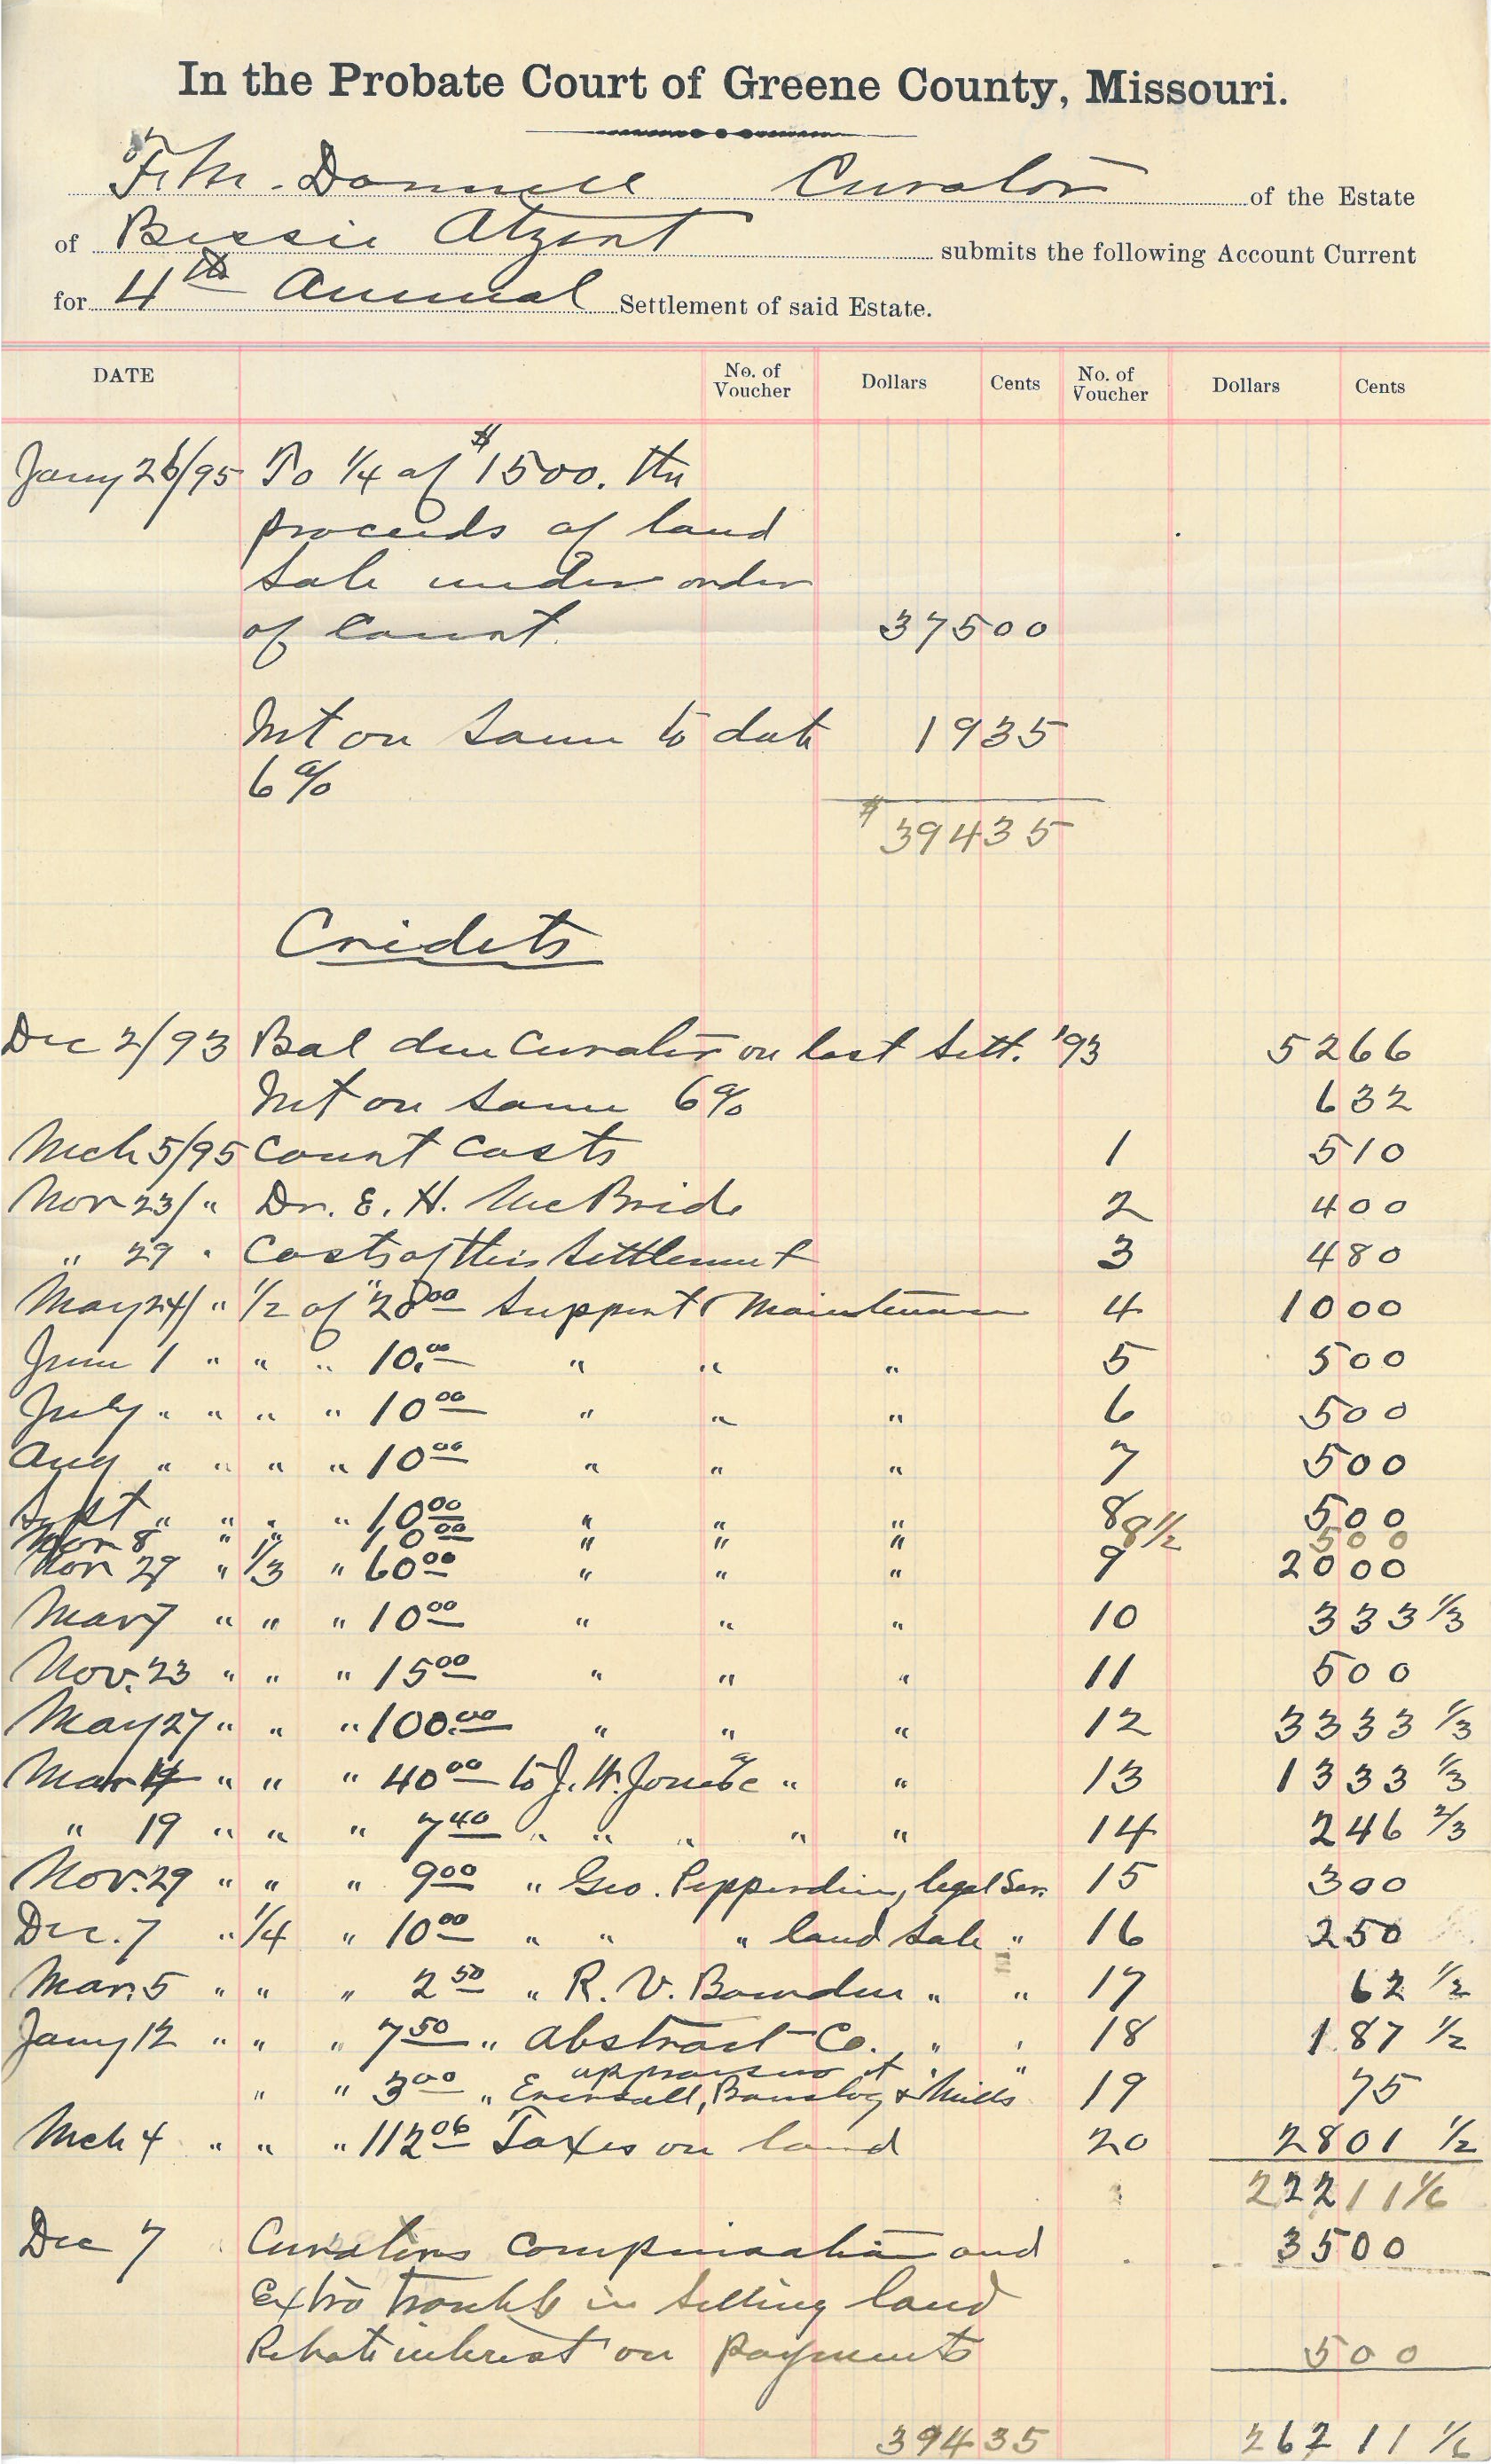 In the Probate Court of Greene County, Missouri.
F. M. Donnell Curator of the Estate
of Bessie Atzent submits the following Account Current
for 4th Annual Settlement of said Estate.
DATE No. of Voucher Dollars Cents No. of Voucher Dollars Cents
Jany 26/95 To 1/4 of $1500. the
proceeds of land
sale under order
of Court. 375 00
Int on same to date 19 35
6%
$394 35
Cridets
Dec 2/93 Bal due Curator on last Sett. '93 52 66
Int on same 6% 6 32
Mch 5/95 Court Costs 1 5 10
Nov 23/ " Dr. E. H. McBride 2 4 00
" 29 " Costs of this Settlement 3 4 80
May 24/ " 1/2 of " 20 00 Support & Maintenance 4 10 00
June 1 " " " 10.00 " " " 5 5 00
July " " " " 10 00 " " " 6 5 00
Aug " " " " 10 00 " " " 7 5 00
Sept " " " " 10 00 " " " 8 5 00
Nov 8 " " 10 00 " " " 8 1/2 5 00
Nov 29 " 1/3 " 60 00 " " " 9 20 00
Mar 7 " " " 10 00 " " " 10 3 33 1/3
Nov. 23 " " " 15 00 " " " 11 5 00
May 27 " " " 100.00 " " " 12 33 33 1/3
Mar 14 " " " 40 00 to J. H. Jones " " 13 13 33 1/3
" 19 " " " 7 40 " " " " " 14 2 46 2/3
Nov. 29 " " " 9 00 " Geo. Pepperdine, legal Ser. 15 3 00
Dec. 7 " 1/4 " 10 00 " " " land sale " 16 2 50
Mar. 5 " " " 2 50 " R. V. Bowden " " 17 62 1/2
Jany 12 " " " 7 50 " Abstract Co. " " 18 1 87 1/2
appraisers of " "
" " 3 00 " & Mills 19 75
Mch 4 " " " 112 06 Taxes on land 20 28 01 1/2
222 11 1/6
Dec 7 Curators compensation and 35 00
Extra trouble in selling land
Rebate interest on payments 5 00
394 35 262 11 1/6